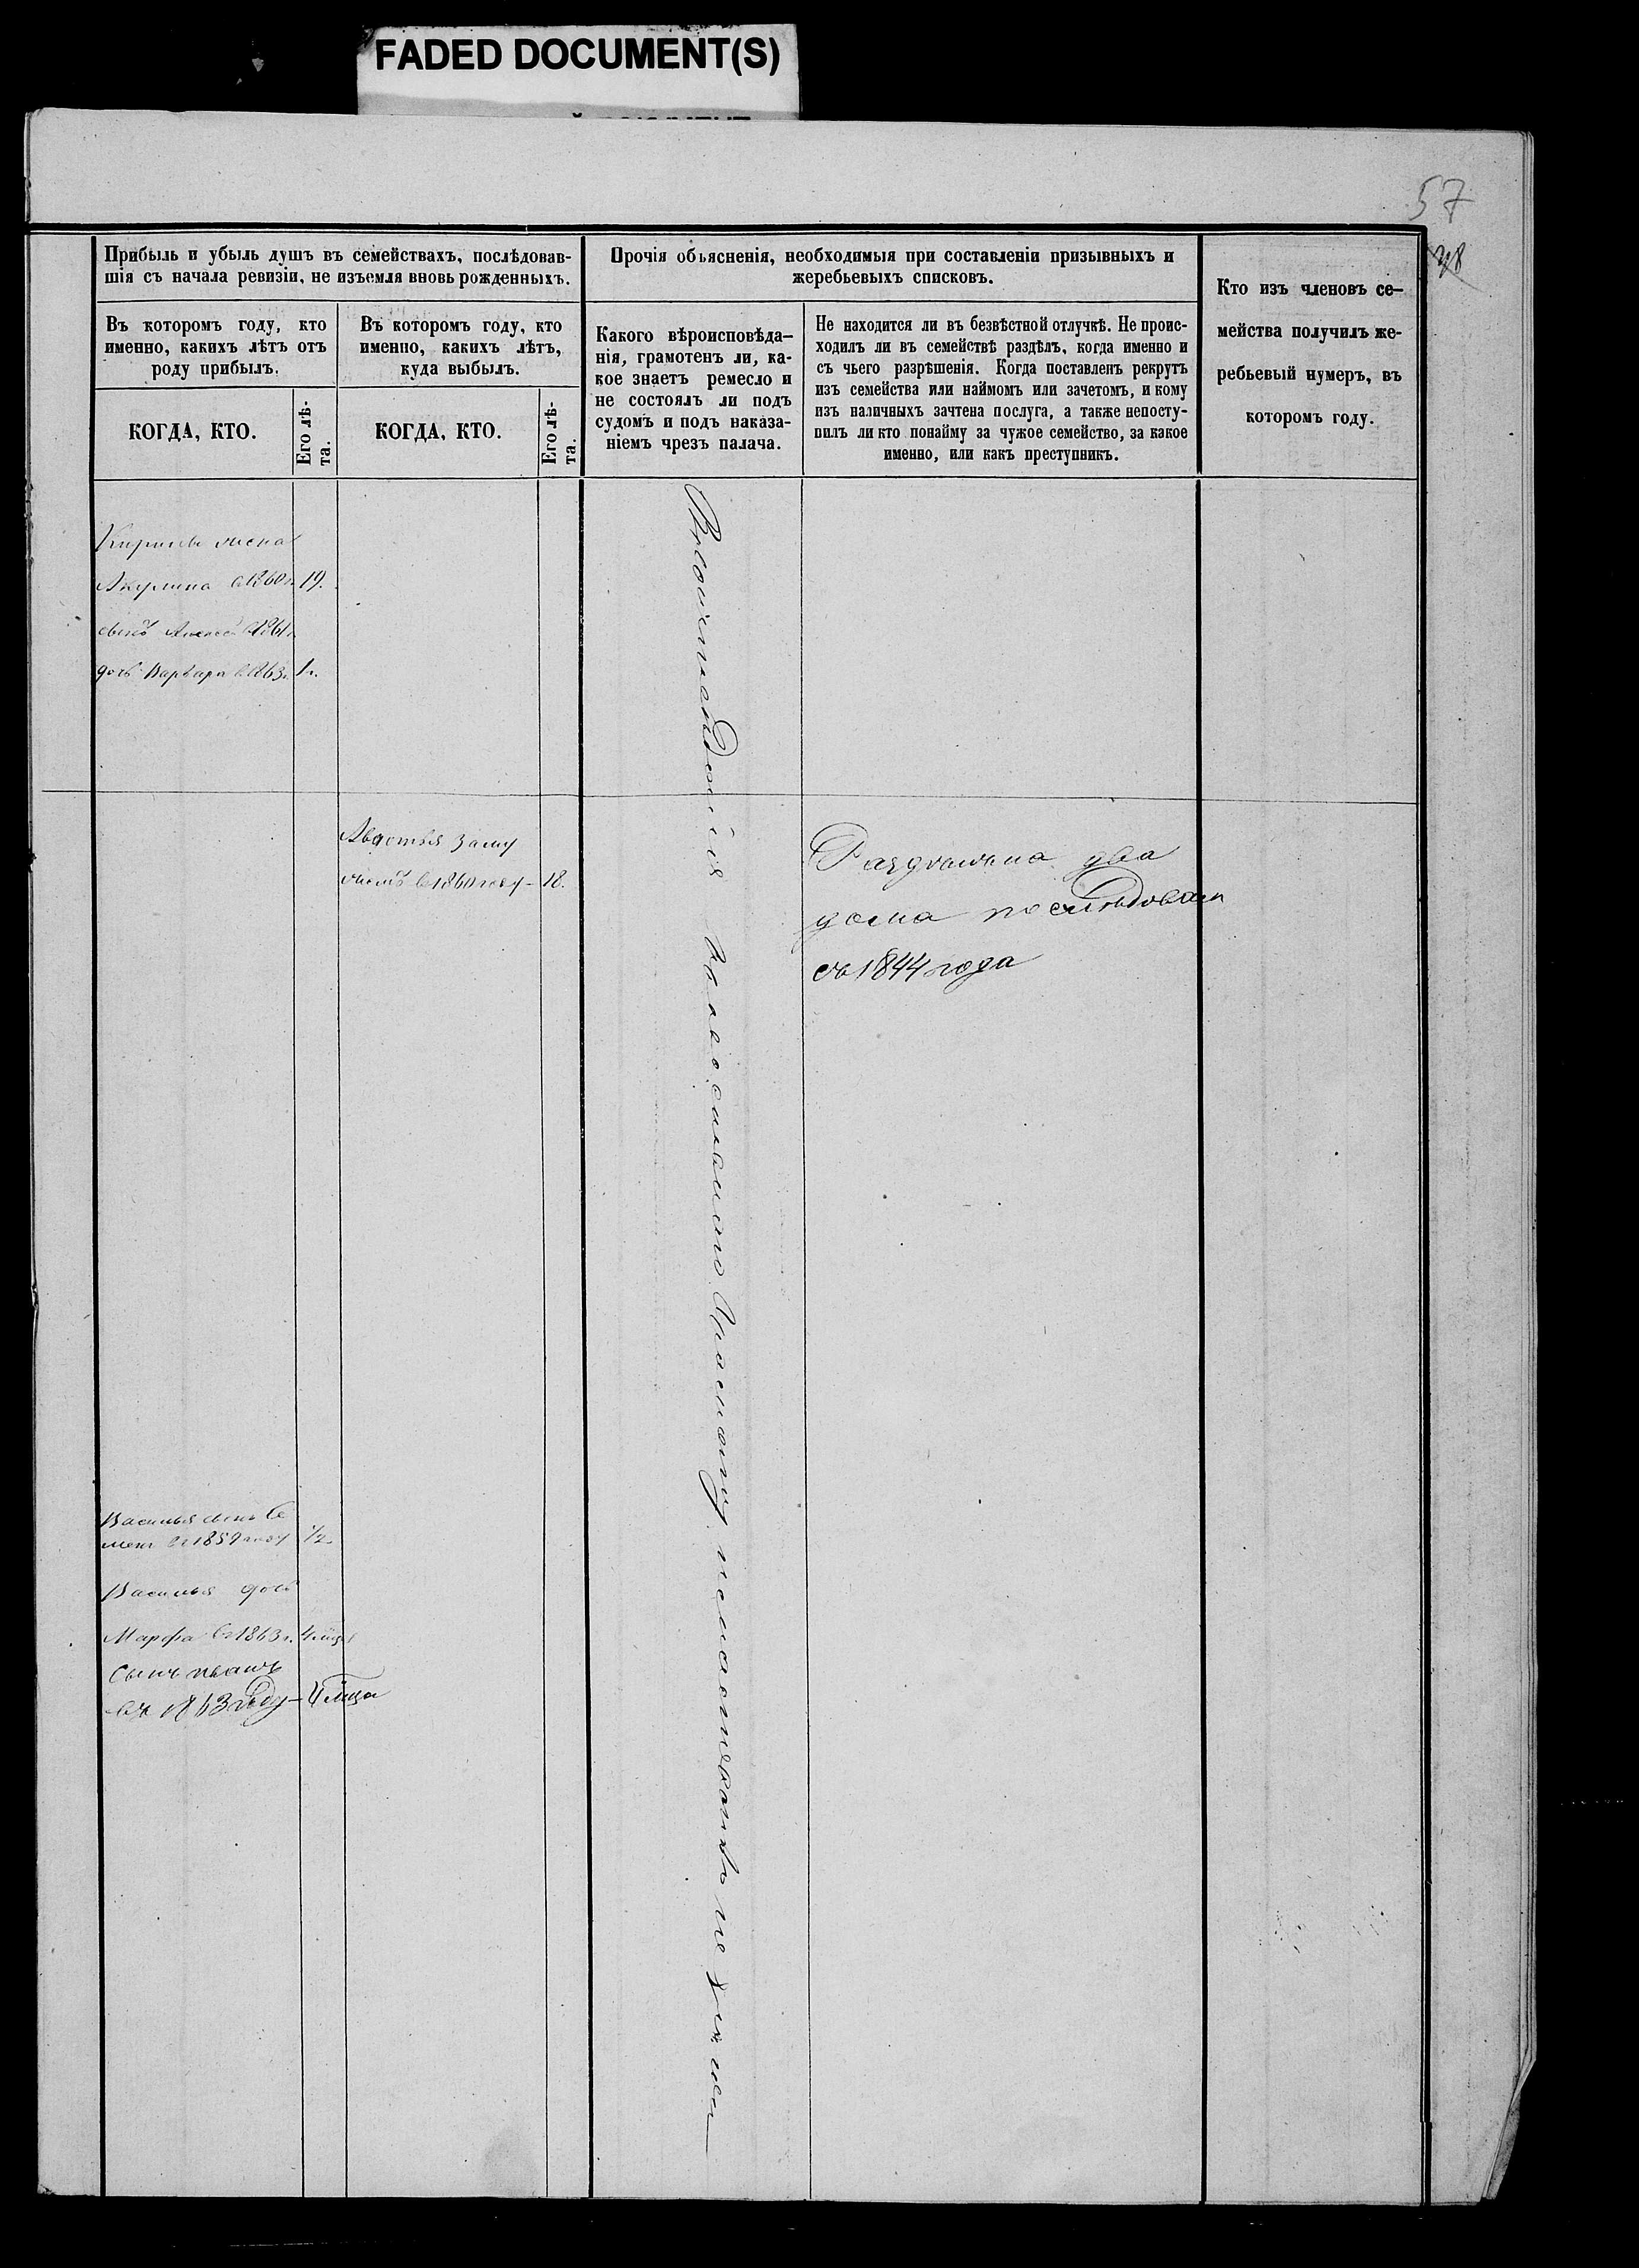 FADED DOCUMENT(S)
57
38
Прибыль и убыль душъ въ семействахъ, послѣдовав-
шія съ начала ревизіи, не изъемля вновь рожденныхъ.
Въ которомъ году, кто
именно, какихъ лѣтъ отъ
роду прибылъ.
КОГДА, КТО.
Его лѣ-
та.
Въ которомъ году, кто
именно, какихъ лѣтъ,
куда выбылъ.
КОГДА, КТО.
Его лѣ-
та.
Прочія объясненія, необходимыя при составленіи призывныхъ и
жеребьевыхъ списковъ.
Какого вѣроисповѣда-
нія, грамотенъ ли, ка-
кое знаетъ ремесло и
не состоялъ ли подъ
судомъ и подъ наказа-
ніемъ чрезъ палача.
Не находится ли въ безвѣстной отлучкѣ. Не проис-
ходилъ ли въ семействѣ раздѣлъ, когда именно и
съ чьего разрѣшенія. Когда поставленъ рекрутъ
изъ семейства или наймомъ или зачетомъ, и кому
изъ наличныхъ зачтена послуга, а также непосту-
пилъ ли кто понайму за чужое семейство, за какое
именно, или какъ преступникъ.
Кто изъ членовъ се-
мейства получилъ же-
ребьевый нумеръ, въ
которомъ году.
жена
Акулина в 1860 г. 19.
сынъ Алексей в 1861 г
дочь Варвара в 1863 г. 1 г.
Авдотья заму
жемъ в 1860 году - 18.
на два
дома последовал
съ 1844 года
Василья сынъ Се
менъ въ 1859 году 1/2
Василья дочь
Марфа въ 1863 г. 4 мца
Сынъ Иванъ
въ 1863 году - 4 мца